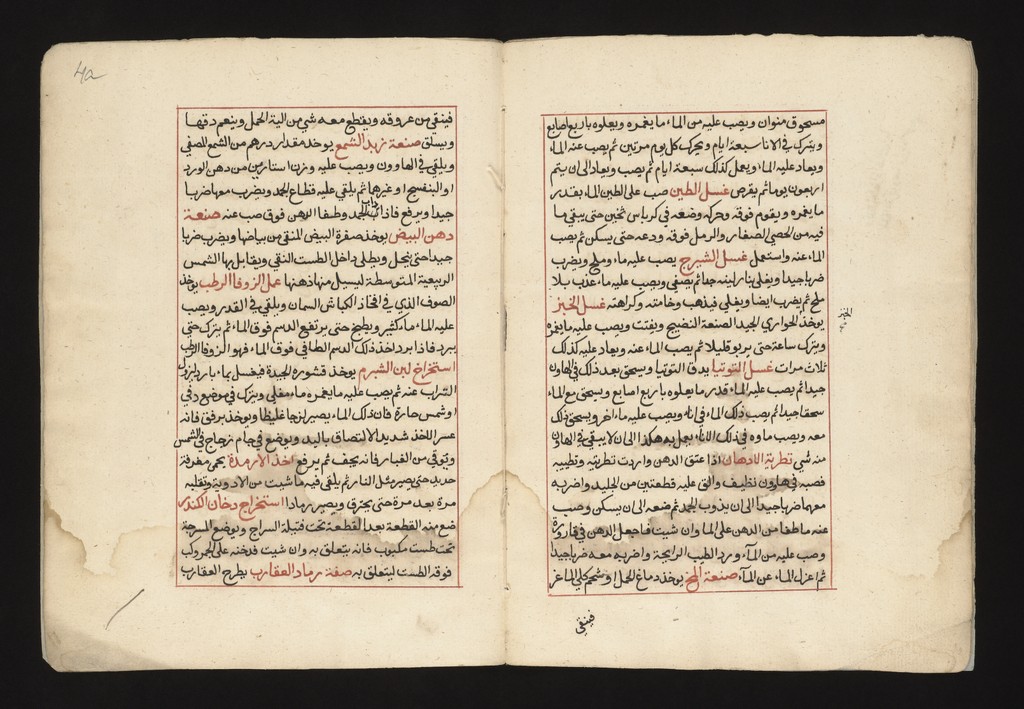 مسحوق منوان ويصب عليه من الماء ما يغمره ويعلوه باربع اصابع
ويترك في الانا سبعة ايام ويحرك كل يوم مرتين ثم يصب عنه الماء
ويعاد عليه الماء ويعمل كذلك سبعة ايام ثم يصب ويعاد الى ان يتم
اربعون يوما ثم يقرص غسل الطين صب على الطين الماء بقدر
ما يغمره ويقوم فوقه وحركه وضعه في كرباس ثخين حتى يبقى ما
فيه من الحصى الصغار والرمل فوقه ودعه حتى يسكن ثم يصب
الماء عنه واستعمل غسل الشيرج يصب عليه ماء وملح ويضرب
ضربا جيدا ويغلى بنار لينه جدا ثم يصفى ويصب عليه ماء عذب بلا
ملح ثم يضرب ايضا ويغلى فيذهب وخامته وكراهته غسل الخبز
يوخذ الحوارى الجيد الصنعة النضيج ويفتت ويصب عليه ما يغمره
ويترك ساعة حتى يربو قليلا ثم يصب الماء عنه ويعاد عليه كذلك
ثلاث مرات غسل التوتيا يدق التوتيا ويسحق بعد ذلك في الهاون
جيدا ثم يصب عليه الماء قدر ما يعلوه باربع اصابع ويسحق مع الماء
سحقا جيدا ثم يصب ذلك الماء في اناء ويصب عليه ماء اخر ويسحق ذلك
معه ويصب ماوه في ذلك الاناء يعمل به هكذا الى ان لا يبقى في الهاون
منه شى تطرية الادهان اذا عتق الدهن واردت تطريته وتطييبه
فصبه في هاون نظيف والق عليه قطعتين من الجليد واضربه
معهما ضربا جيدا الى ان يذوب الجمد ثم ضعه الى ان يسكن وصب
عنه ما طفا من الدهن على الما وان شيت فاجعل الدهن في قارورة
وصب عليه من الماء ورد الطيب الرايحة واضربه معه ضربا جيدا
ثم اعزل الماء عن الماء صنعة المخ يوخذ دماغ الحمل او شحم كلى الماعز
الخبز
فينقى
42
فينقى من عروقه ويقطع معه شى من الية الحمل وينعم دقها
ويسلق صنعة زبد الشمع يوخذ مقدار درهم من الشمع المصفى
ويلقى في الهاوون ويصب عليه وزن استارين من دهن الورد
او البنفسج او غيرها ثم يلقى عليه قطاع الجمد ويضرب معها ضربا
جيدا ويرفع فاذا ذاب الجمد وطفا الدهن فوق صب عنه صنعة
دهن البيض يوخذ صفرة البيض المنقى من بياضها ويضرب ضربا
جيدا حتى ينحل ويطلى داخل الطست النقى ويقابل بها الشمس
الربيعية المتوسطة ليسيل منها ذهنها عمل الزوفا الرطب يوخذ
الصوف الذى في افخاذ الكباش السمان ويلقى في القدر ويصب
عليه الماء ماء كثير ويطبخ حتى يرتفع الدسم فوق الماء ثم يترك حتى
يبرد فاذا برد اخذ ذلك الدسم الطافى فوق الماء فهو الزوفا الرطب
استخراج لبن الشبرم يوخذ قشوره الجيدة فيغسل بماء بارد ليزول
التراب عنه ثم يصب عليه ما يغمره ماء مغلى ويترك في موضع دفى
او شمس حارة فان ذلك الماء يصير لزجا غليظا ويوخذ برفق فانه
عسر الاخذ شديد الالتصاق باليد ويوضع في جام زجاج في الشمس
ويوقى من الغبار فانه يجف ثم يرفع اخذ الارمدة يحمى مغرفة
حديد حتى يصير مثل النار ثم يلقى فيه ما شيت من الادوية وتقلبه
مرة بعد مرة حتى يحترق ويصير رمادا استخراج دخان الكندر
ضع منه القطعة بعد القطعة تحت فتيلة السراج ويوضع المسرجة
تحت طست مكبوب فانه يتعلق به وان شيت فدخنه على الجمر وكب
فوقه الطست ليتعلق به صفة رماد العقارب يطرح العقارب